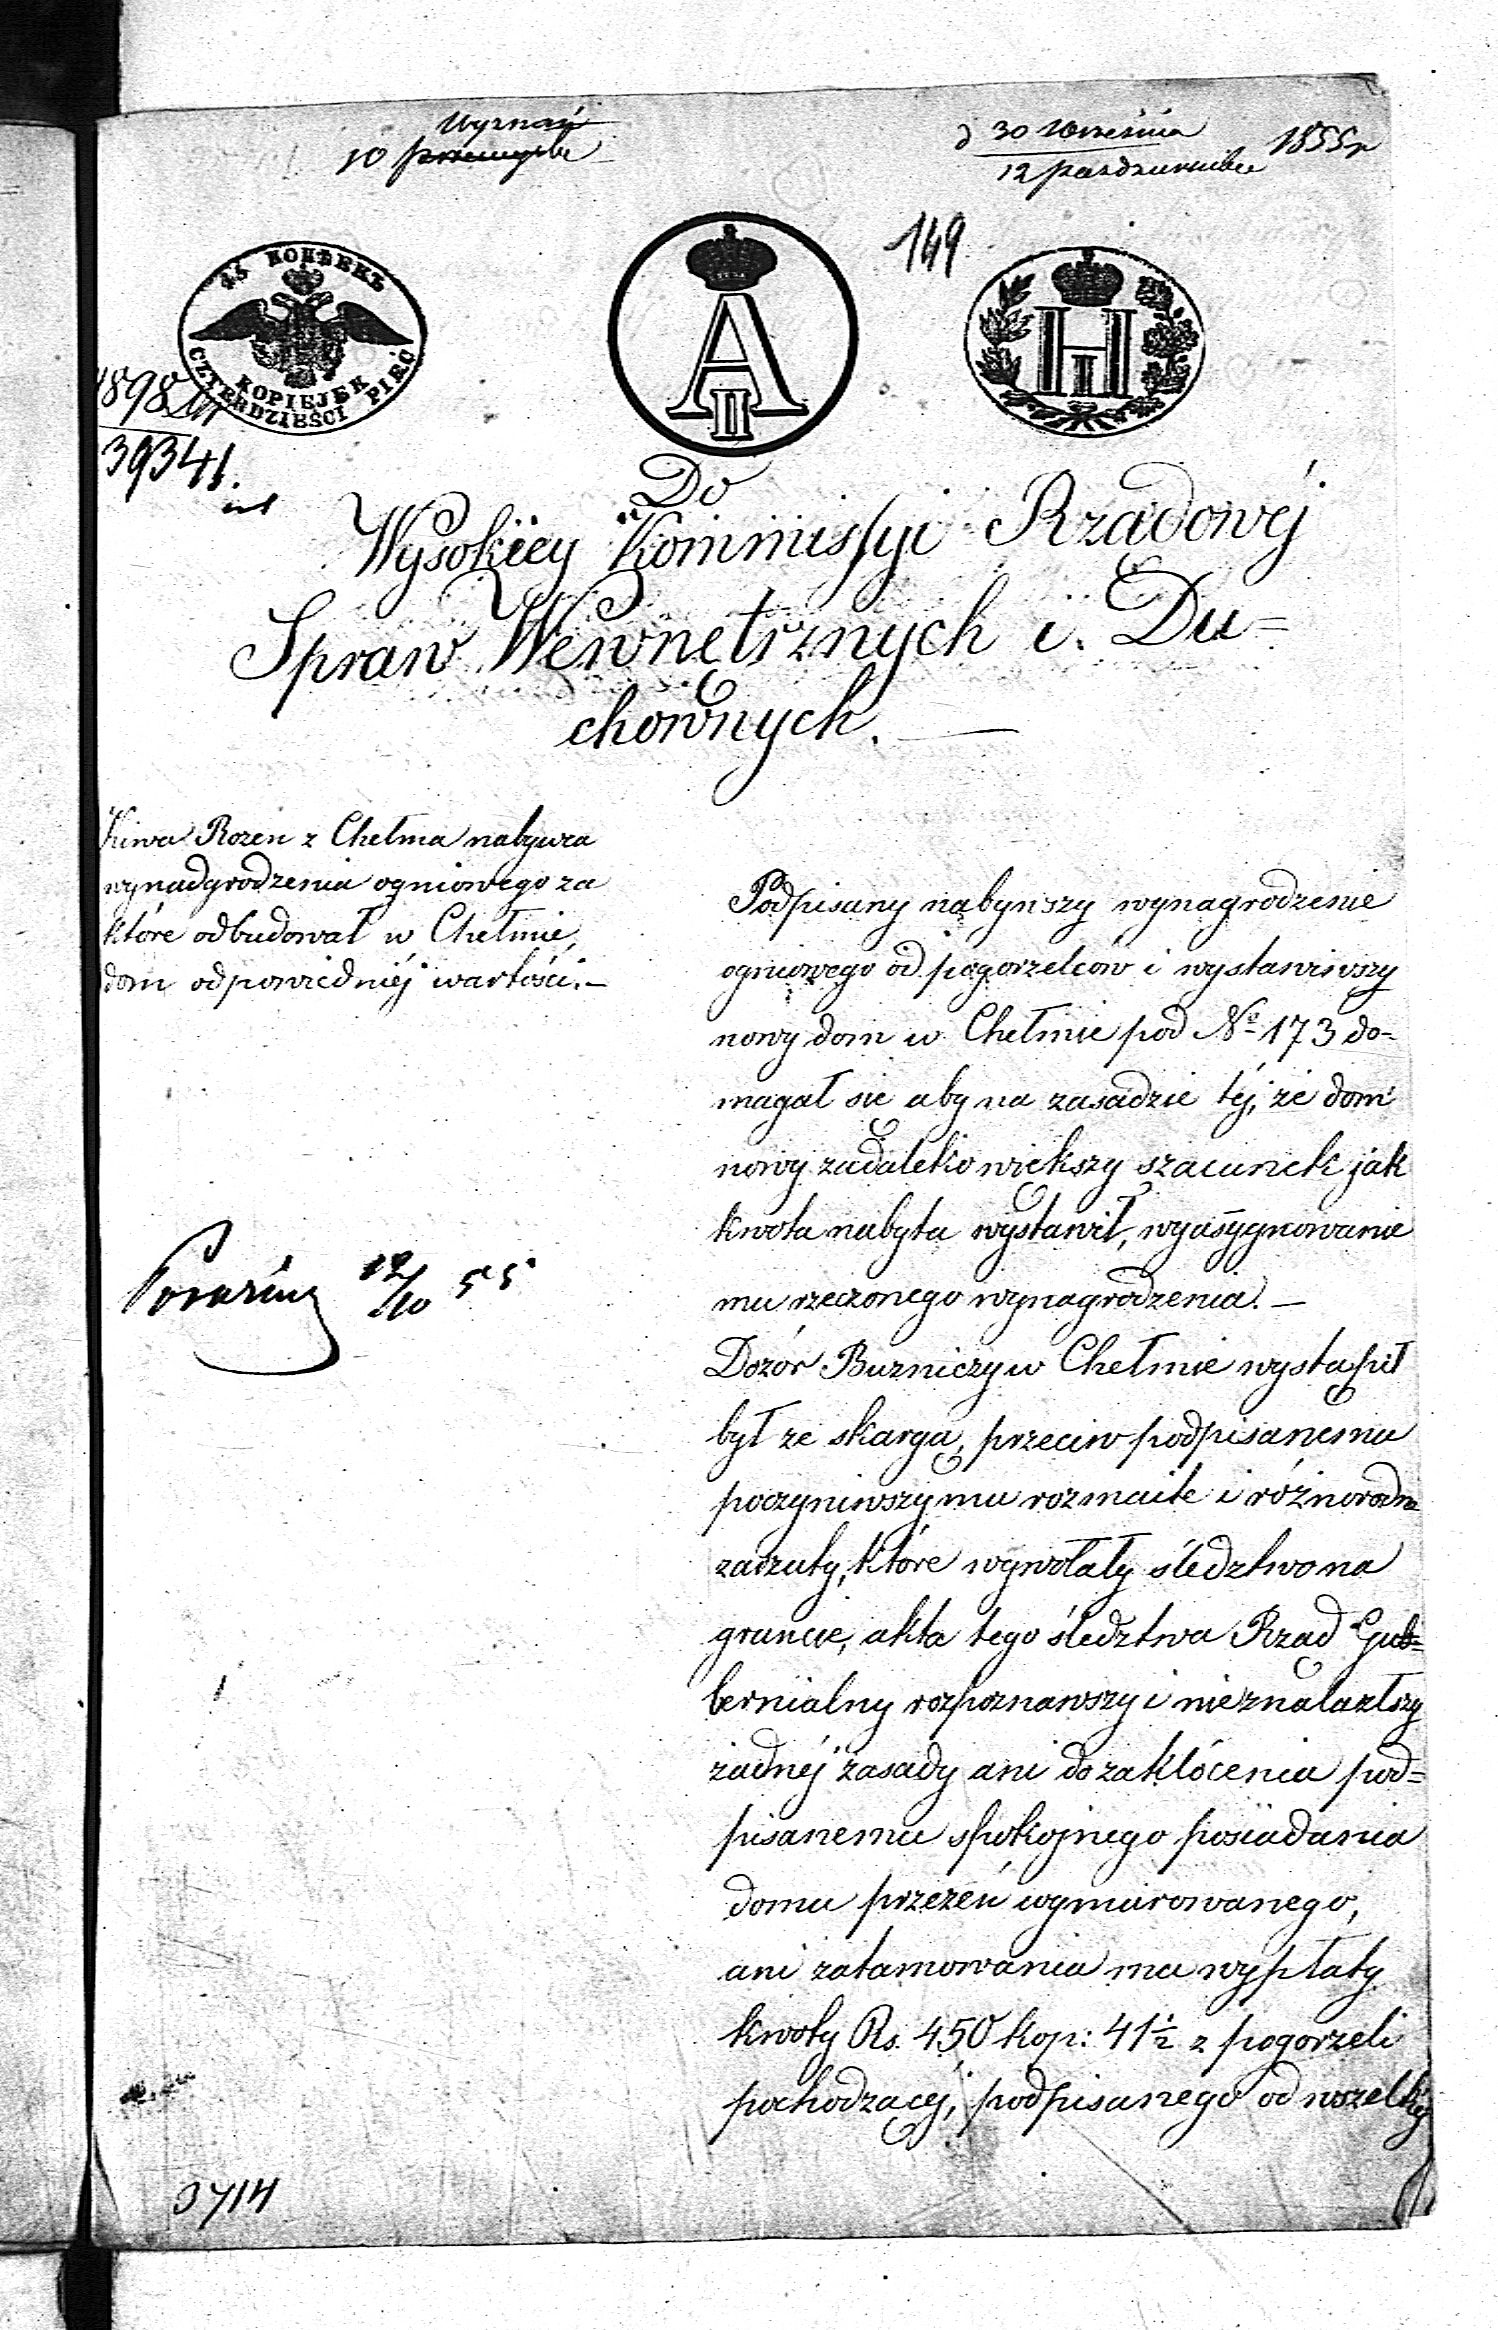 Wyznań
10 przemysłu
d 30 Września 1855 r
12 pazdziernika
149
45 КОПѢЕКЪ
KOPIEJEK
CZTERDZIESCI PIĘĆ
A II
H I
1898
39341.
Do
Wysokiey Kommissyi Rządowéj
Spraw Wewnętrznych i Du=
chownych. —
Kiwa Rozen z Chełma nabywca
wynadgrodzenia ogniowego za
które odbudował w Chełmie,
dom odpowiedniéj wartości. —
12/10 55
Podpisany nabywszy wynagrodzenie
ogniowego od pogorzelców i wystawiwszy
nowy dom w Chełmie pod No 173 do-
magał się aby na zasadzie téj, że dom
nowy zadaleko większy szacunek jak
kwota nabyta wystawił, wyassygnowanie
mu rzeczonego wynagrodzenia. —
Dozór Bużniczy w Chełmie wystąpił
był ze skargą, przeciw podpisanemu
poczyniwszy mu rozmaite i różnorodne
zarzuty, które wywołały śledztwo na
gruncie, akta tego śledztwa Rząd Gub=
bernialny rozpoznawszy i nieznalazłszy
żadnéj zasady ani do zakłócenia pod=
pisanemu spokojnego posiadania
domu przezeń wymurowanego,
ani zatamowania mu wypłaty
kwoty Rs. 450 kop: 41½ z pogorzeli
pochodzącéj, podpisanego od wszelkiéj
3714